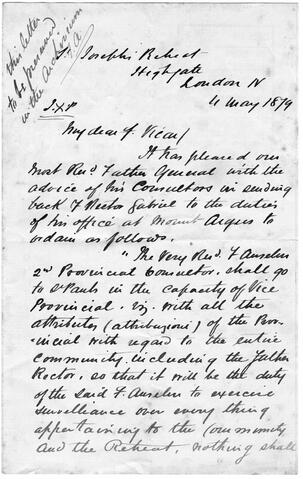 this letter
to be preserved
in the archivium
St Joseph's Retreat
Highgate
London N
4 May 1879
J.X.P
My dear F. Vicar,
It has pleased our
Most Revd Father General with the
advice of his Consultors in sending
back F Rector Gabriel to the duties
of his office at Mount Argus to
ordain as follows.
"The Very Revd. F Anselm
2nd Provincial Consultor, shall go
to St Pauls in the capacity of Vice
Provincial. Viz. with all the
attributes (attribuzioni) of the Prov-
incial with regard to the entire
community, including the Father
Rector, so that it will be the duty
of the said F. Anselm to exercise
surveillance over every thing
appertaining to the Community
and the Retreat, nothing shall